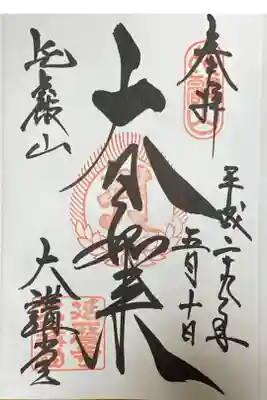 奉拝
平成二十九年
五月十日
大日如来
比叡山
大講堂